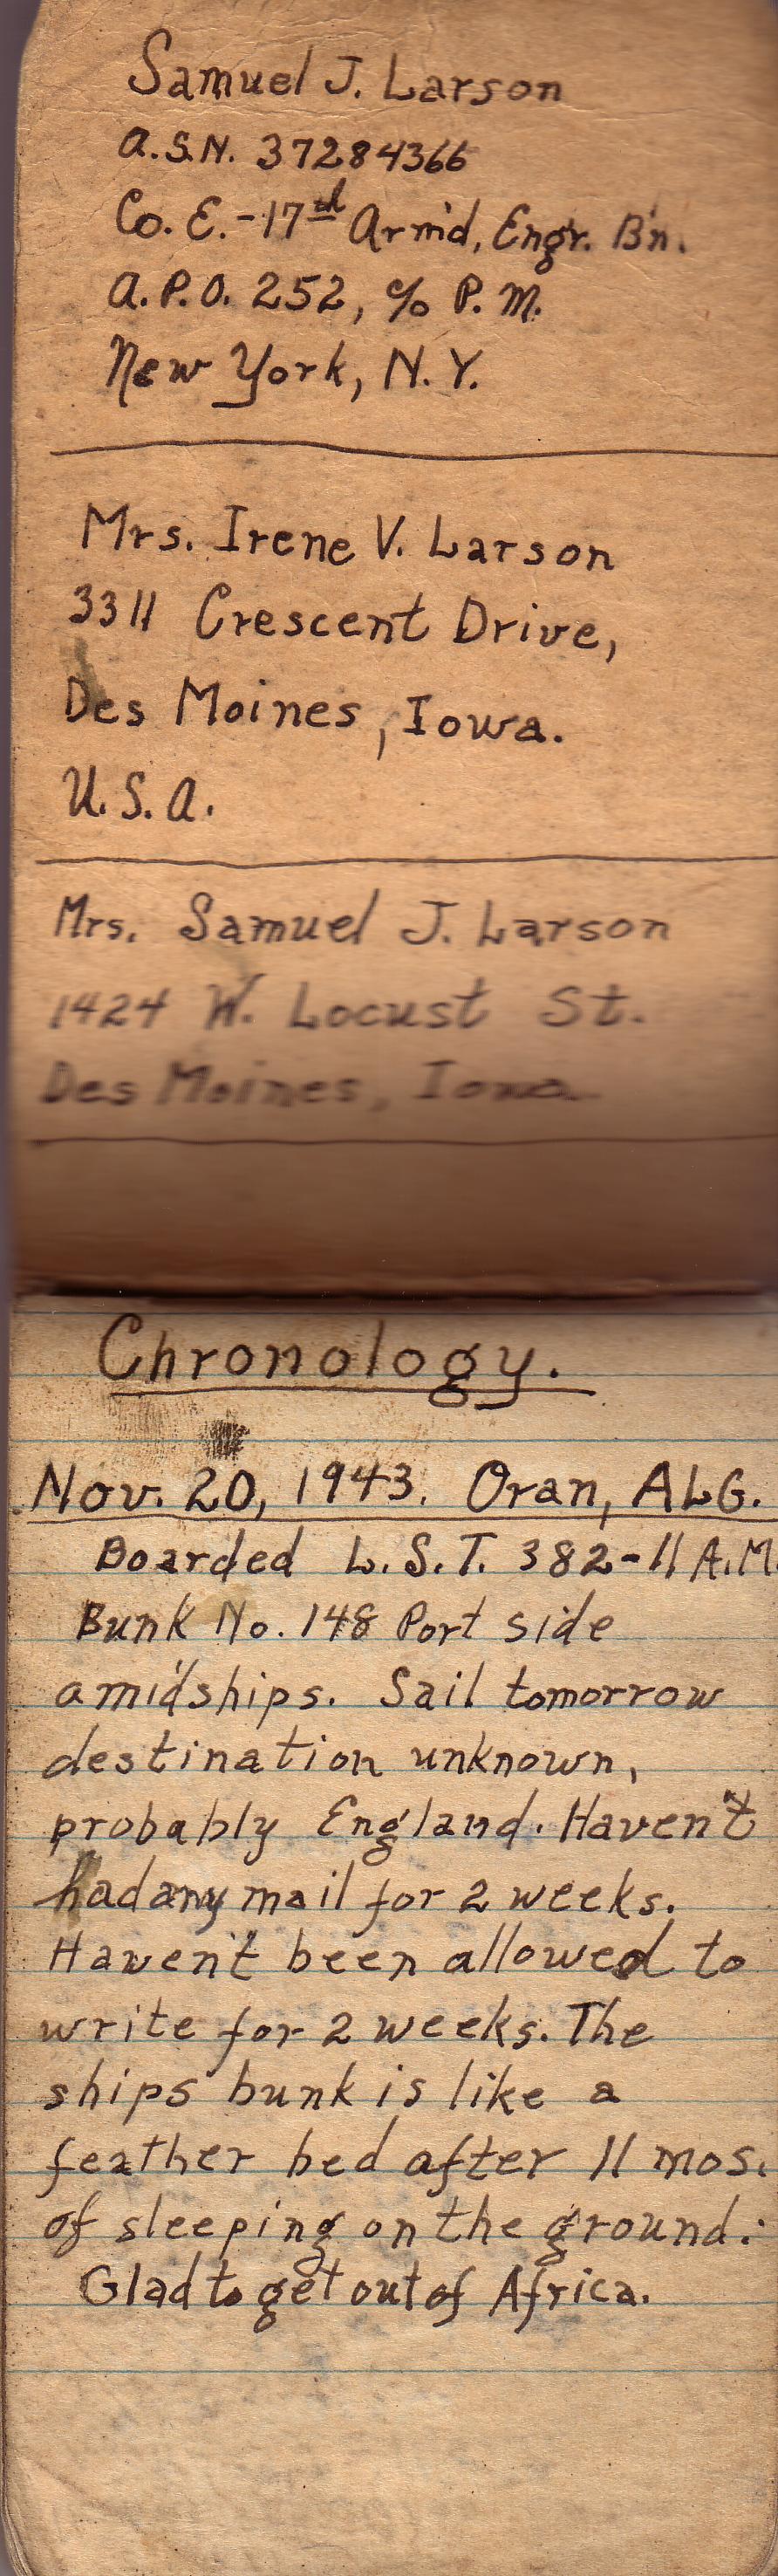 Samuel J. Larson
A.S.N. 37284366
Co. E.-17th Arm'd, Engr. B'n.
A.P.O. 252, c/o P.M.
New York, N.Y.
Mrs. Irene V. Larson
3311 Crescent Drive,
Des Moines, Iowa.
U.S.A.
Mrs. Samuel J. Larson
1424 W. Locust St.
Des Moines, Iowa
Chronology.
Nov. 20, 1943. Oran, ALG.
Boarded L.S.T. 382-11 A.M.
Bunk No. 148 Port side
amidships. Sail tomorrow
destination unknown,
probably England. Haven't
had any mail for 2 weeks.
Haven't been allowed to
write for 2 weeks. The
ships bunk is like a
feather bed after 11 mos.
of sleeping on the ground.
Glad to get out of Africa.